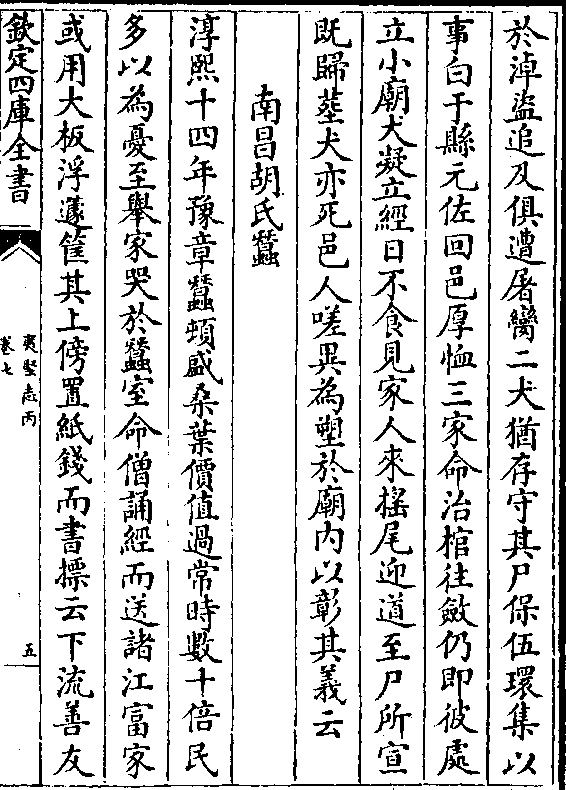 於淖盜追及俱遭屠臠二犬猶存守其尸保伍環集以
事白于縣元佐回邑厚恤三家命治棺往斂仍即彼處
立小廟犬凝立經日不食見家人來揺尾迎道至尸所宣
既歸塟犬亦死邑人嗟異為塑於廟内以彰其義云
南昌胡氏蠶
淳熙十四年豫章蠶頓盛桑葉價值過常時數十倍民
多以為憂至舉家哭於蠶室命僧誦經而送諸江富家
或用大板浮籧筐其上傍置紙錢而書摽云下流善友
欽定四庫全書
夷堅志丙
卷七
五